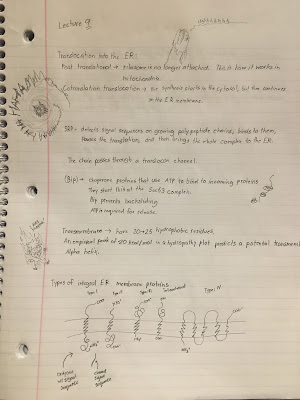 Lecture 9
Translocation into the ER:
Post translational → ribosome is no longer attached. This is how it works in
mitochondria.
Cotranslation translocation → synthesis starts in the cytosol, but then continues
in the ER membrane.
SRP → detects signal sequences on growing polypeptide chains, binds to them,
translation, and then brings the whole complex to the ER.
The chain passes through a translocon channel.
(Bip) → chaperone proteins that use ATP to bind to incoming proteins
They start this at the Sec63 complex.
Bip prevents backsliding
ATP is required for release.
Transmembrane → has 20→25 hydrophobic residues.
An empirical peak of 20 kcal/mol in a hydropathy plot predicts a potential transmembrane
Alpha helix.
Types of integral ER membrane proteins
Type I
Type II
Type III
Type IV
COO⁻
COO⁻
NH₃⁺
Signal
Sequence